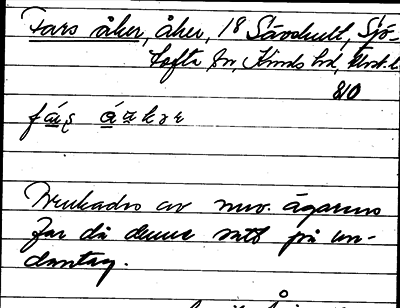 Fars åker, åker, 18 Sävshult, Sjö-
tofta sn, Kinds hd,
810

Brukades av nuv. ägarens
far då denne satt på un-
dantag.